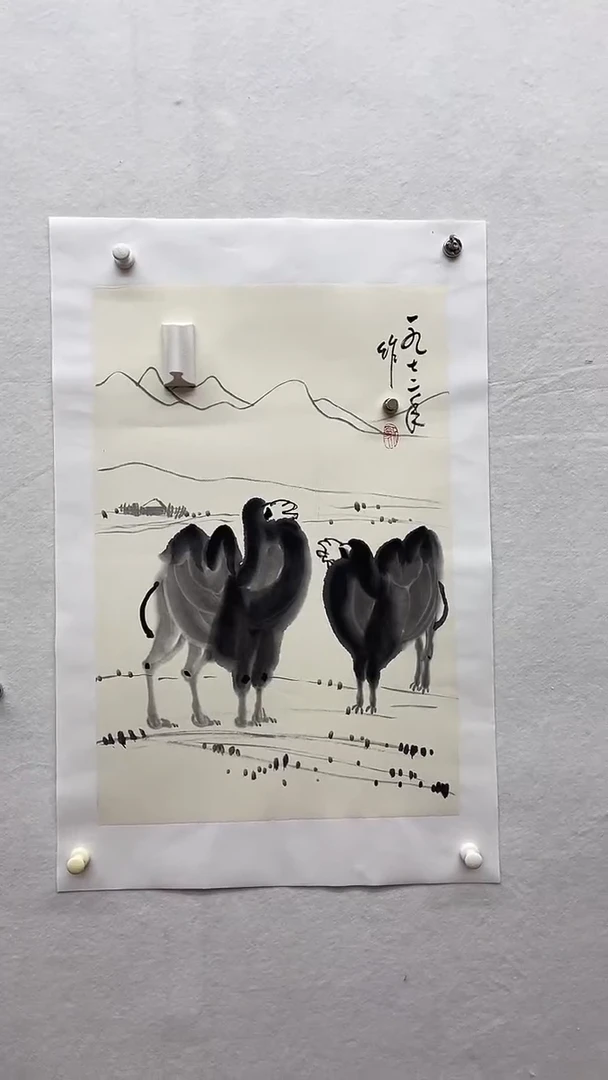 一九七二年
作